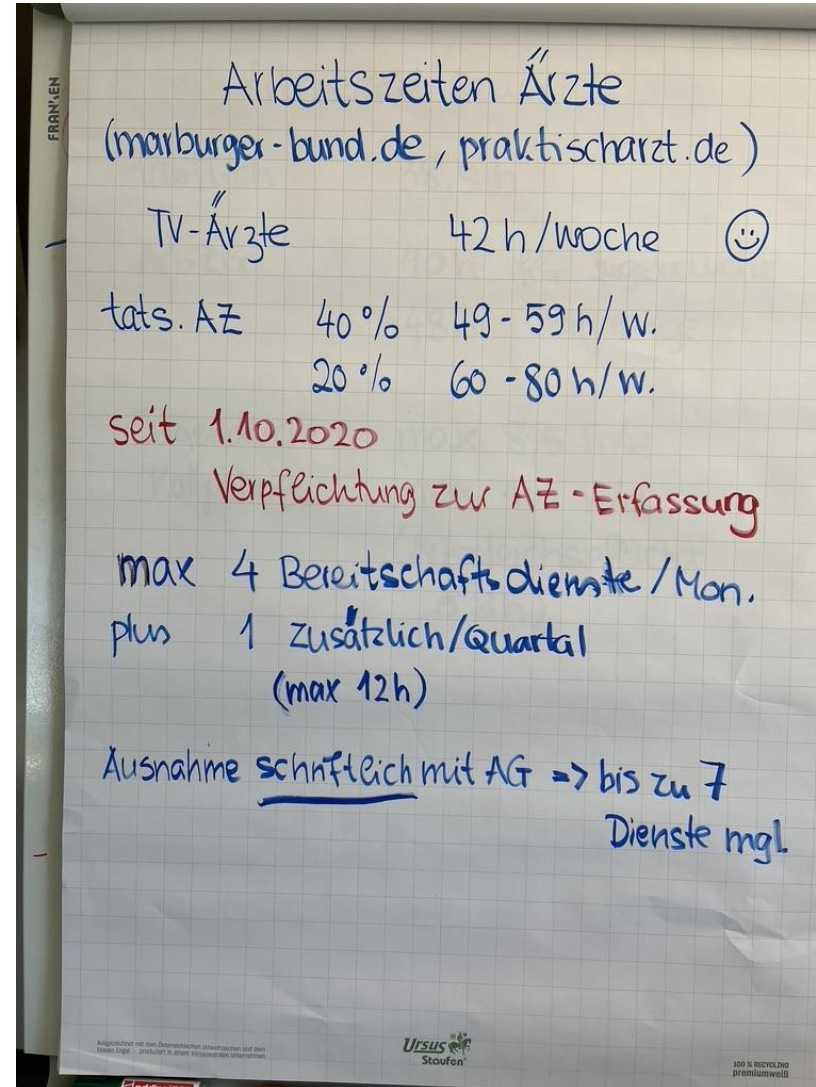 FRANKEN
Arbeitszeiten Ärzte
(marburger-bund.de, praktischarzt.de)
TV-Ärzte 42 h/Woche ☺
tats. AZ 40 % 49 - 59 h/W.
20 % 60 - 80 h/W.
seit 1.10.2020
Verpflichtung zur AZ-Erfassung
max 4 Bereitschaftsdienste/Mon.
plus 1 zusätzlich/Quartal
(max 12h)
Ausnahme schriftlich mit AG => bis zu 7
Dienste mgl.
Ausgezeichnet mit dem Österreichischen Umweltzeichen und dem
Blauen Engel - produziert in einem klimaneutralen Unternehmen.
Ursus
Staufen
100 % RECYCLING
premiumweiß